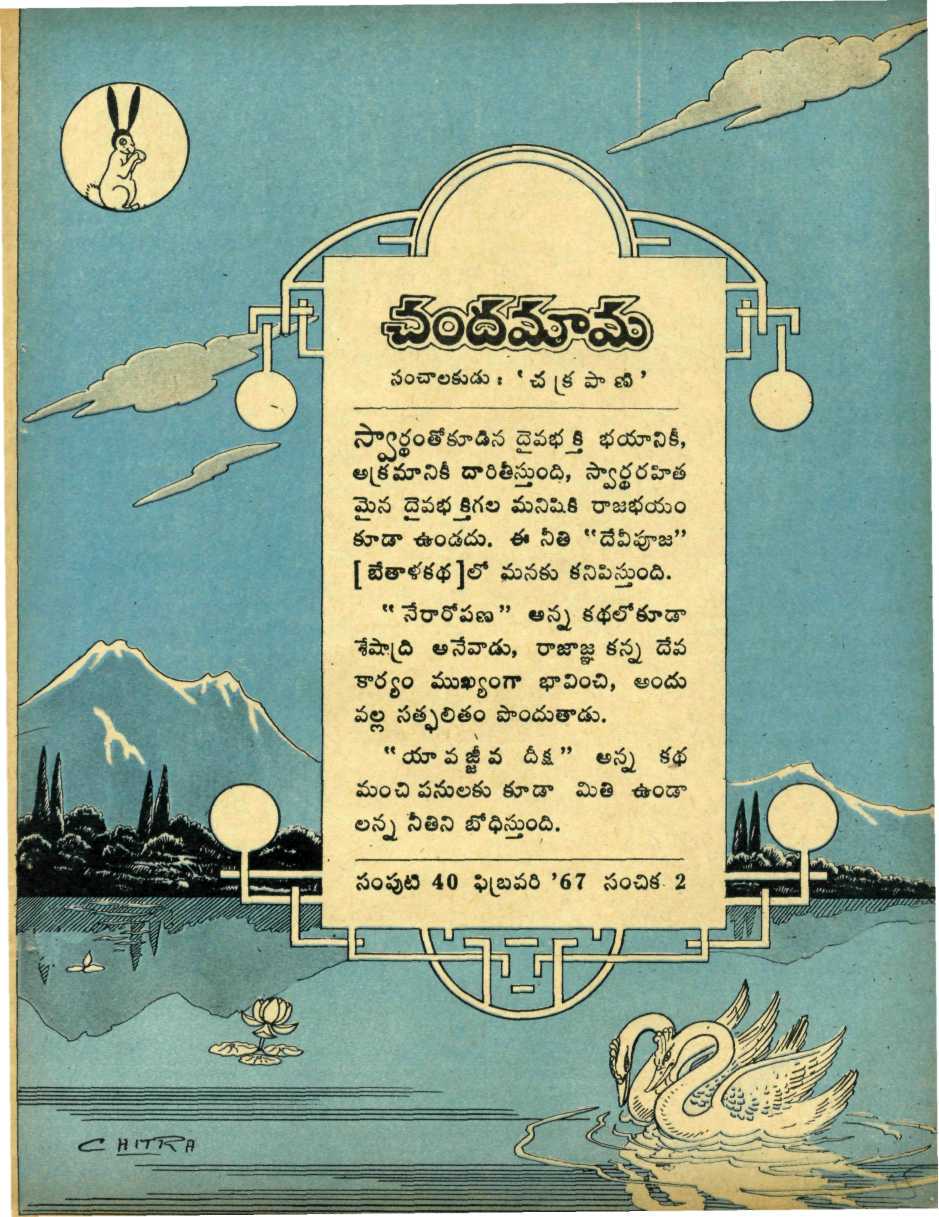 చందమామ
సంచాలకుడు : ‘చక్రపాణి’
స్వార్థంతోకూడిన దైవభక్తి భయానికీ,
అక్రమానికీ దారితీస్తుంది, స్వార్థరహిత
మైన దైవభక్తిగల మనిషికి రాజభయం
కూడా ఉండదు. ఈ నీతి “దేవీపూజ”
[బేతాళకథ]లో మనకు కనిపిస్తుంది.
“నేరారోపణ” అన్న కథలోకూడా
శేషాద్రి అనేవాడు, రాజాజ్ఞ కన్న దేవ
కార్యం ముఖ్యంగా భావించి, అందు
వల్ల సత్ఫలితం పొందుతాడు.
“యావజ్జీవ దీక్ష” అన్న కథ
మంచి పనులకు కూడా మితి ఉండా
లన్న నీతిని బోధిస్తుంది.
సంపుటి 40 ఫిబ్రవరి ’67 సంచిక 2
CHITRA